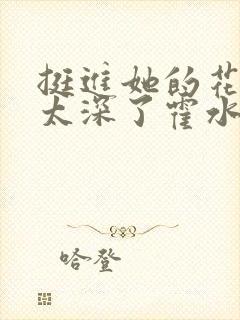 挺进她的花
太深了霍水
哈登